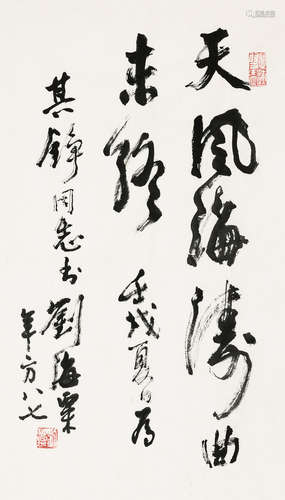 天风海涛曲
未终 壬戌夏日为
其铮同志书
刘海粟
年方八七